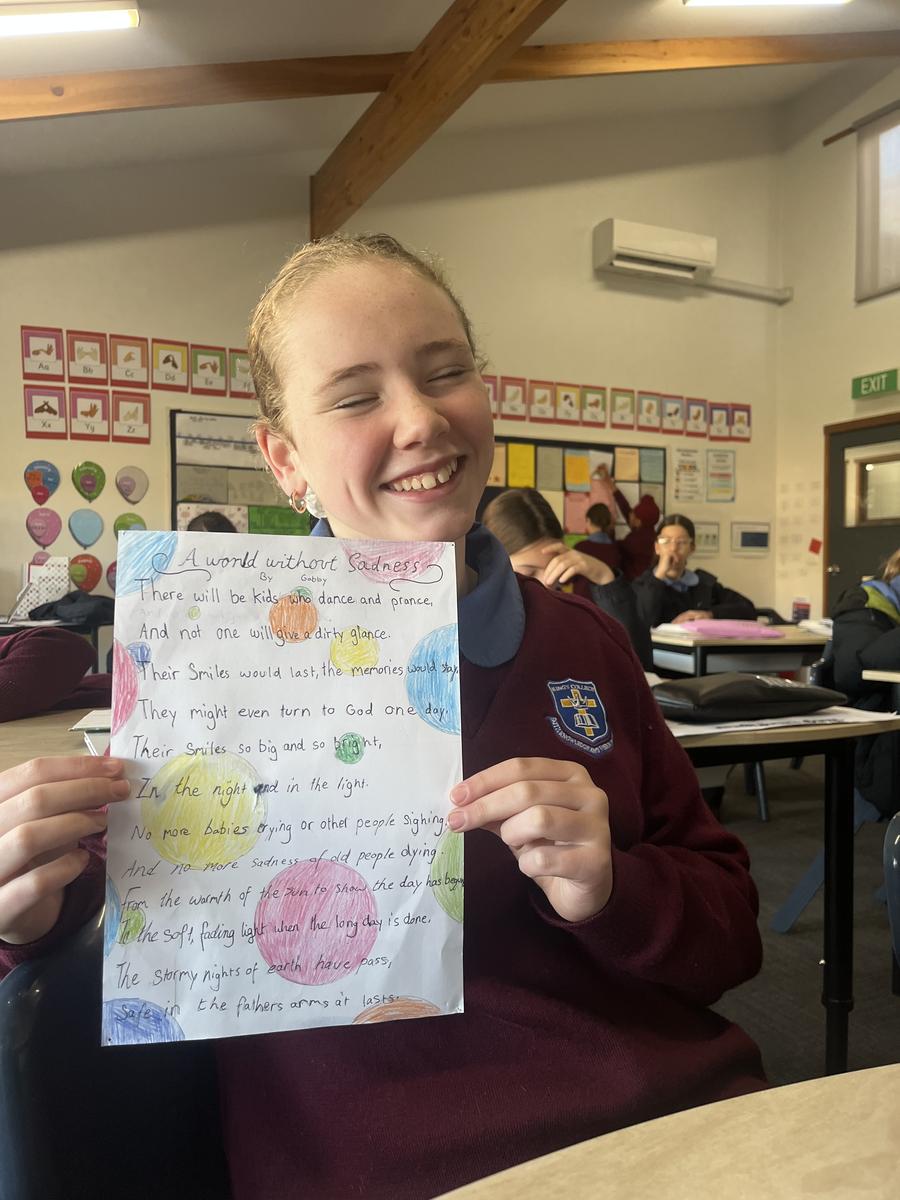 EXIT
Aa
Bb
Cc
Dd
Ee
Xx
Yy
Zz
A world without Sadness
By Gabby
There will be kids who dance and prance,
And not one will give a dirty glance.
Their Smiles would last, the memories would stay.
They might even turn to God one day.
Their Smiles so big and so bright,
In the night and in the light.
No more babies crying or other people sighing.
And no more sadness of old people dying.
From the warmth of the sun to show the day has begun
In the soft, fading light when the long day is done.
The stormy nights of earth have pass,
Safe in the fathers arms at lasts.
KING'S COLLEGE